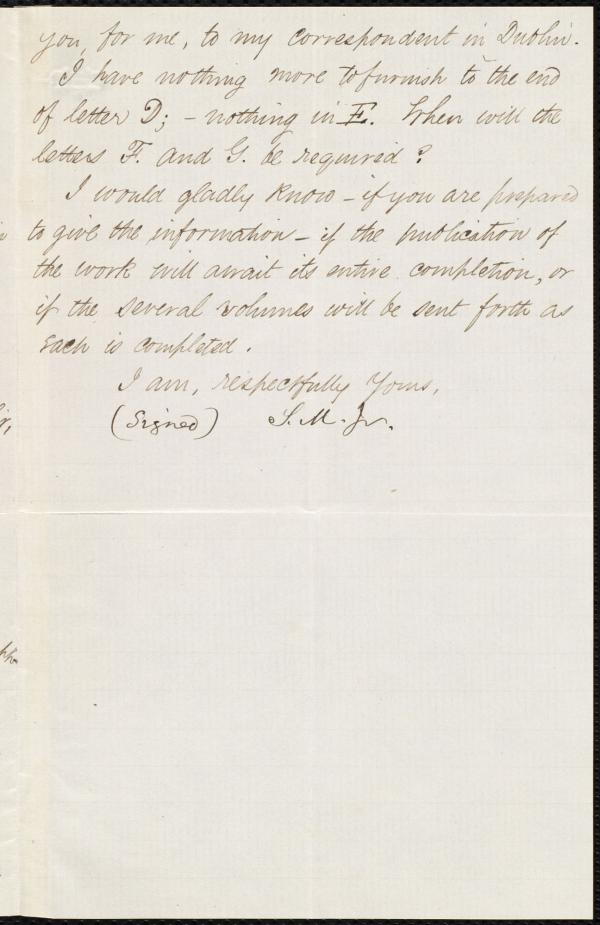 you, for me, to my correspondent in Dublin.
I have nothing more to furnish to the end
of letter D; – nothing in E. When will the
letters F. and G. be required?
I would gladly know – if you are prepared
to give the information – if the publication of
the work will await its entire completion, or
if the several volumes will be sent forth as
each is completed.
I am, respectfully Yours,
(Signed) S. M. Jr.